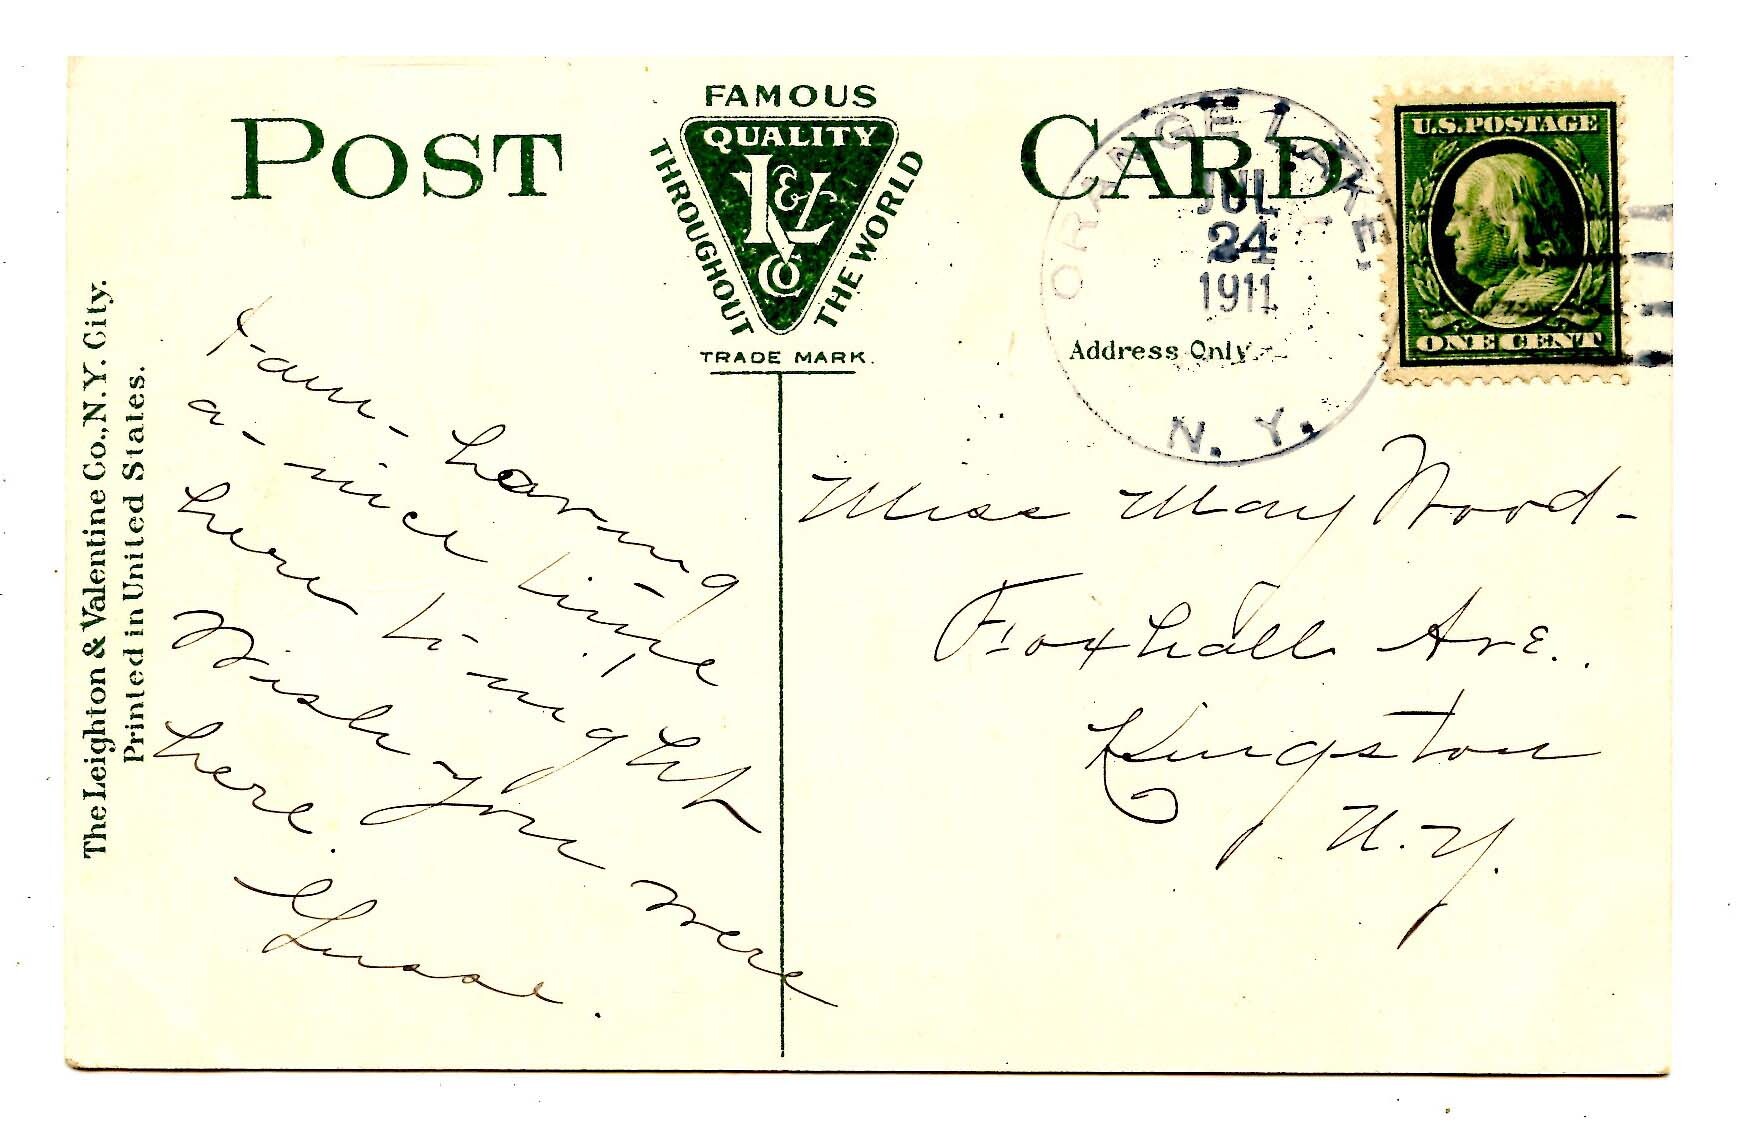 POST CARD
FAMOUS
QUALITY
THROUGHOUT
THE WORLD
L&V
Co
TRADE MARK.
Address Only.
JUL
24
1911
N. Y.
U.S. POSTAGE
ONE CENT
The Leighton & Valentine Co., N.Y. City.
Printed in United States.
I-am-having
a-nice time
here to-night
Wish-you were
here.
Miss May Wood-
Foxhall Ave.
Kingston
N.Y.